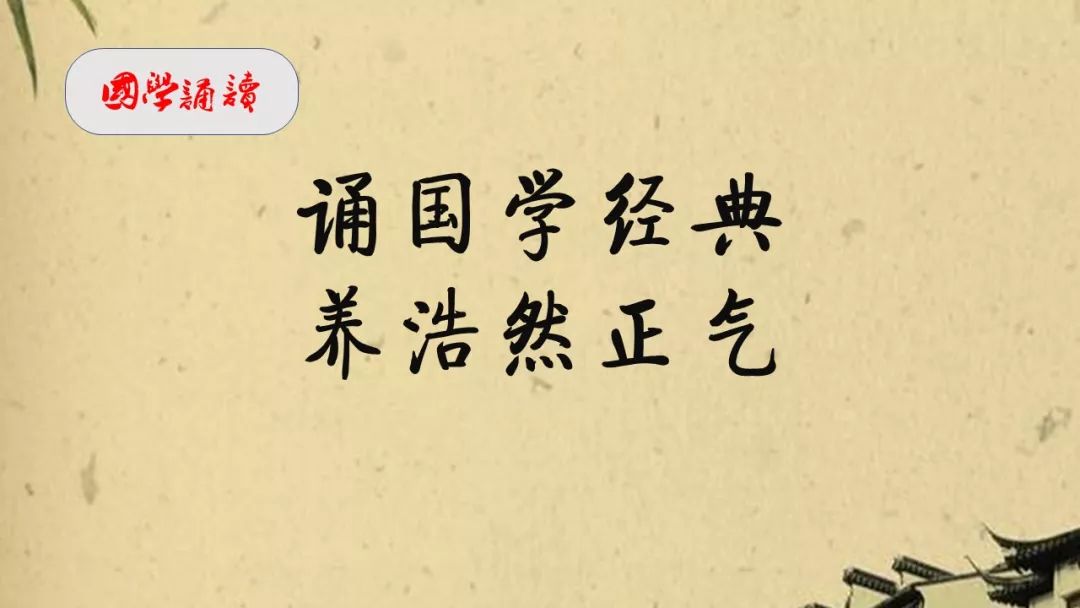 國學誦讀
诵国学经典
养浩然正气